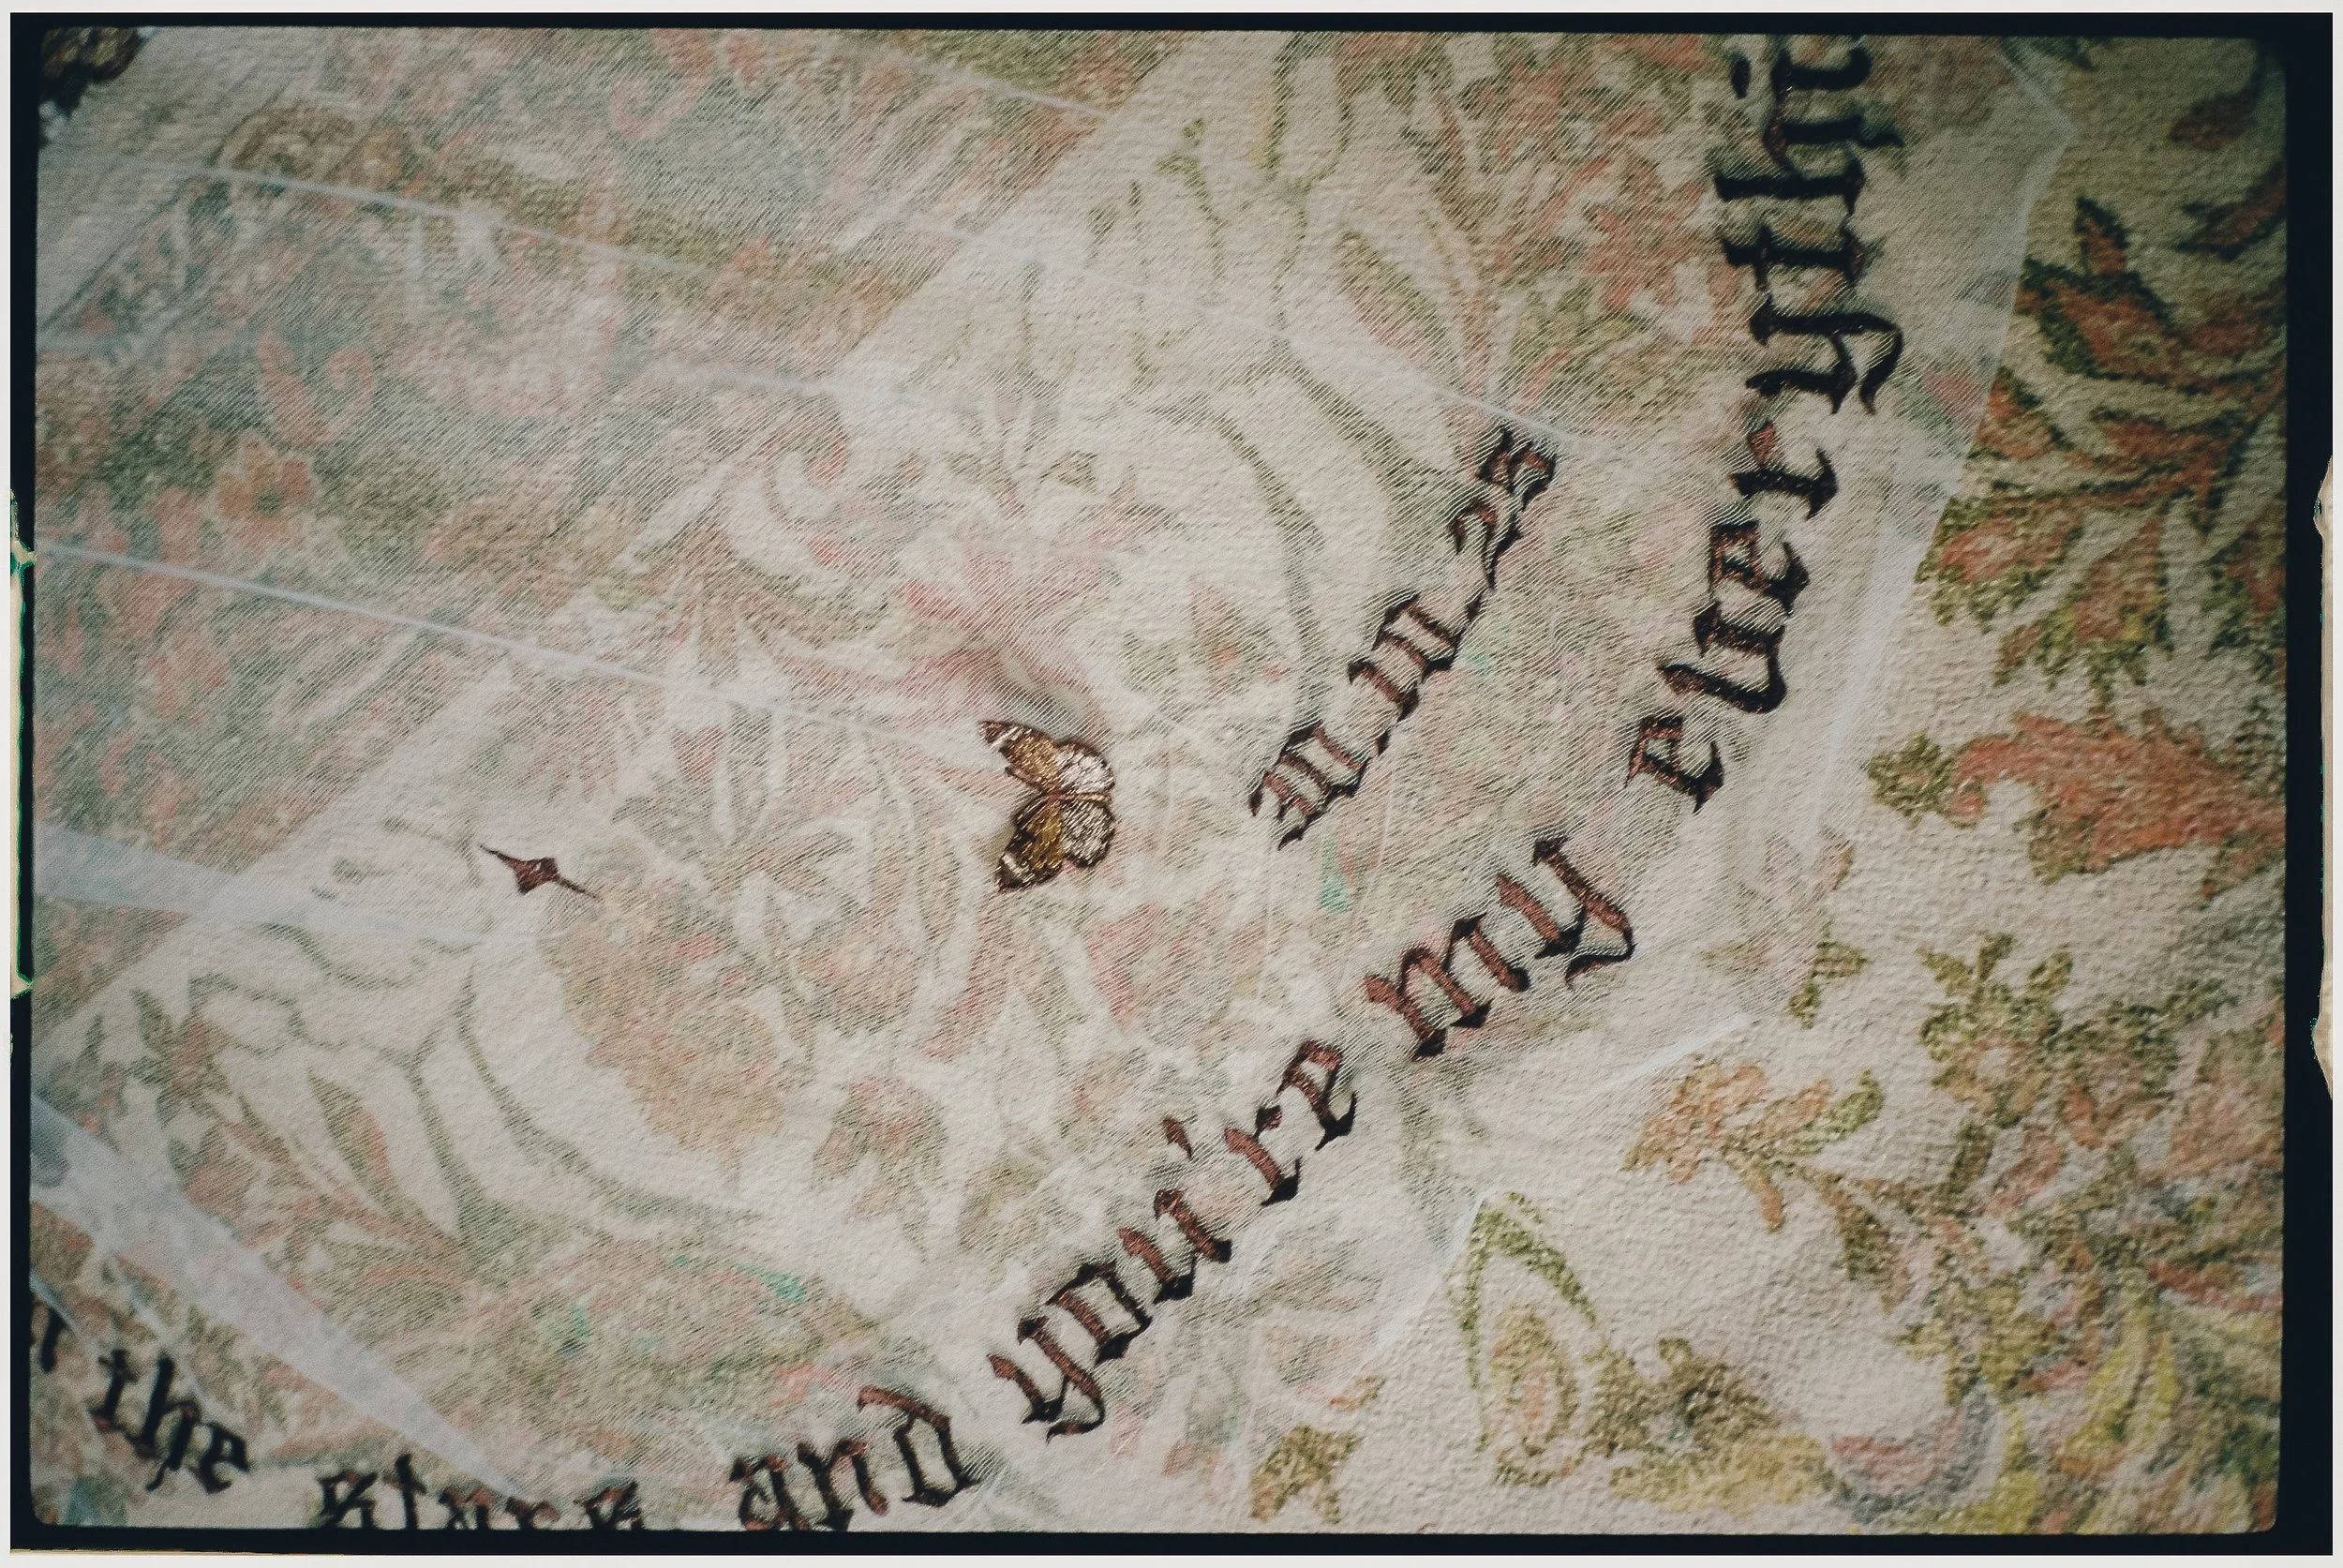 the stars and you're my everythi